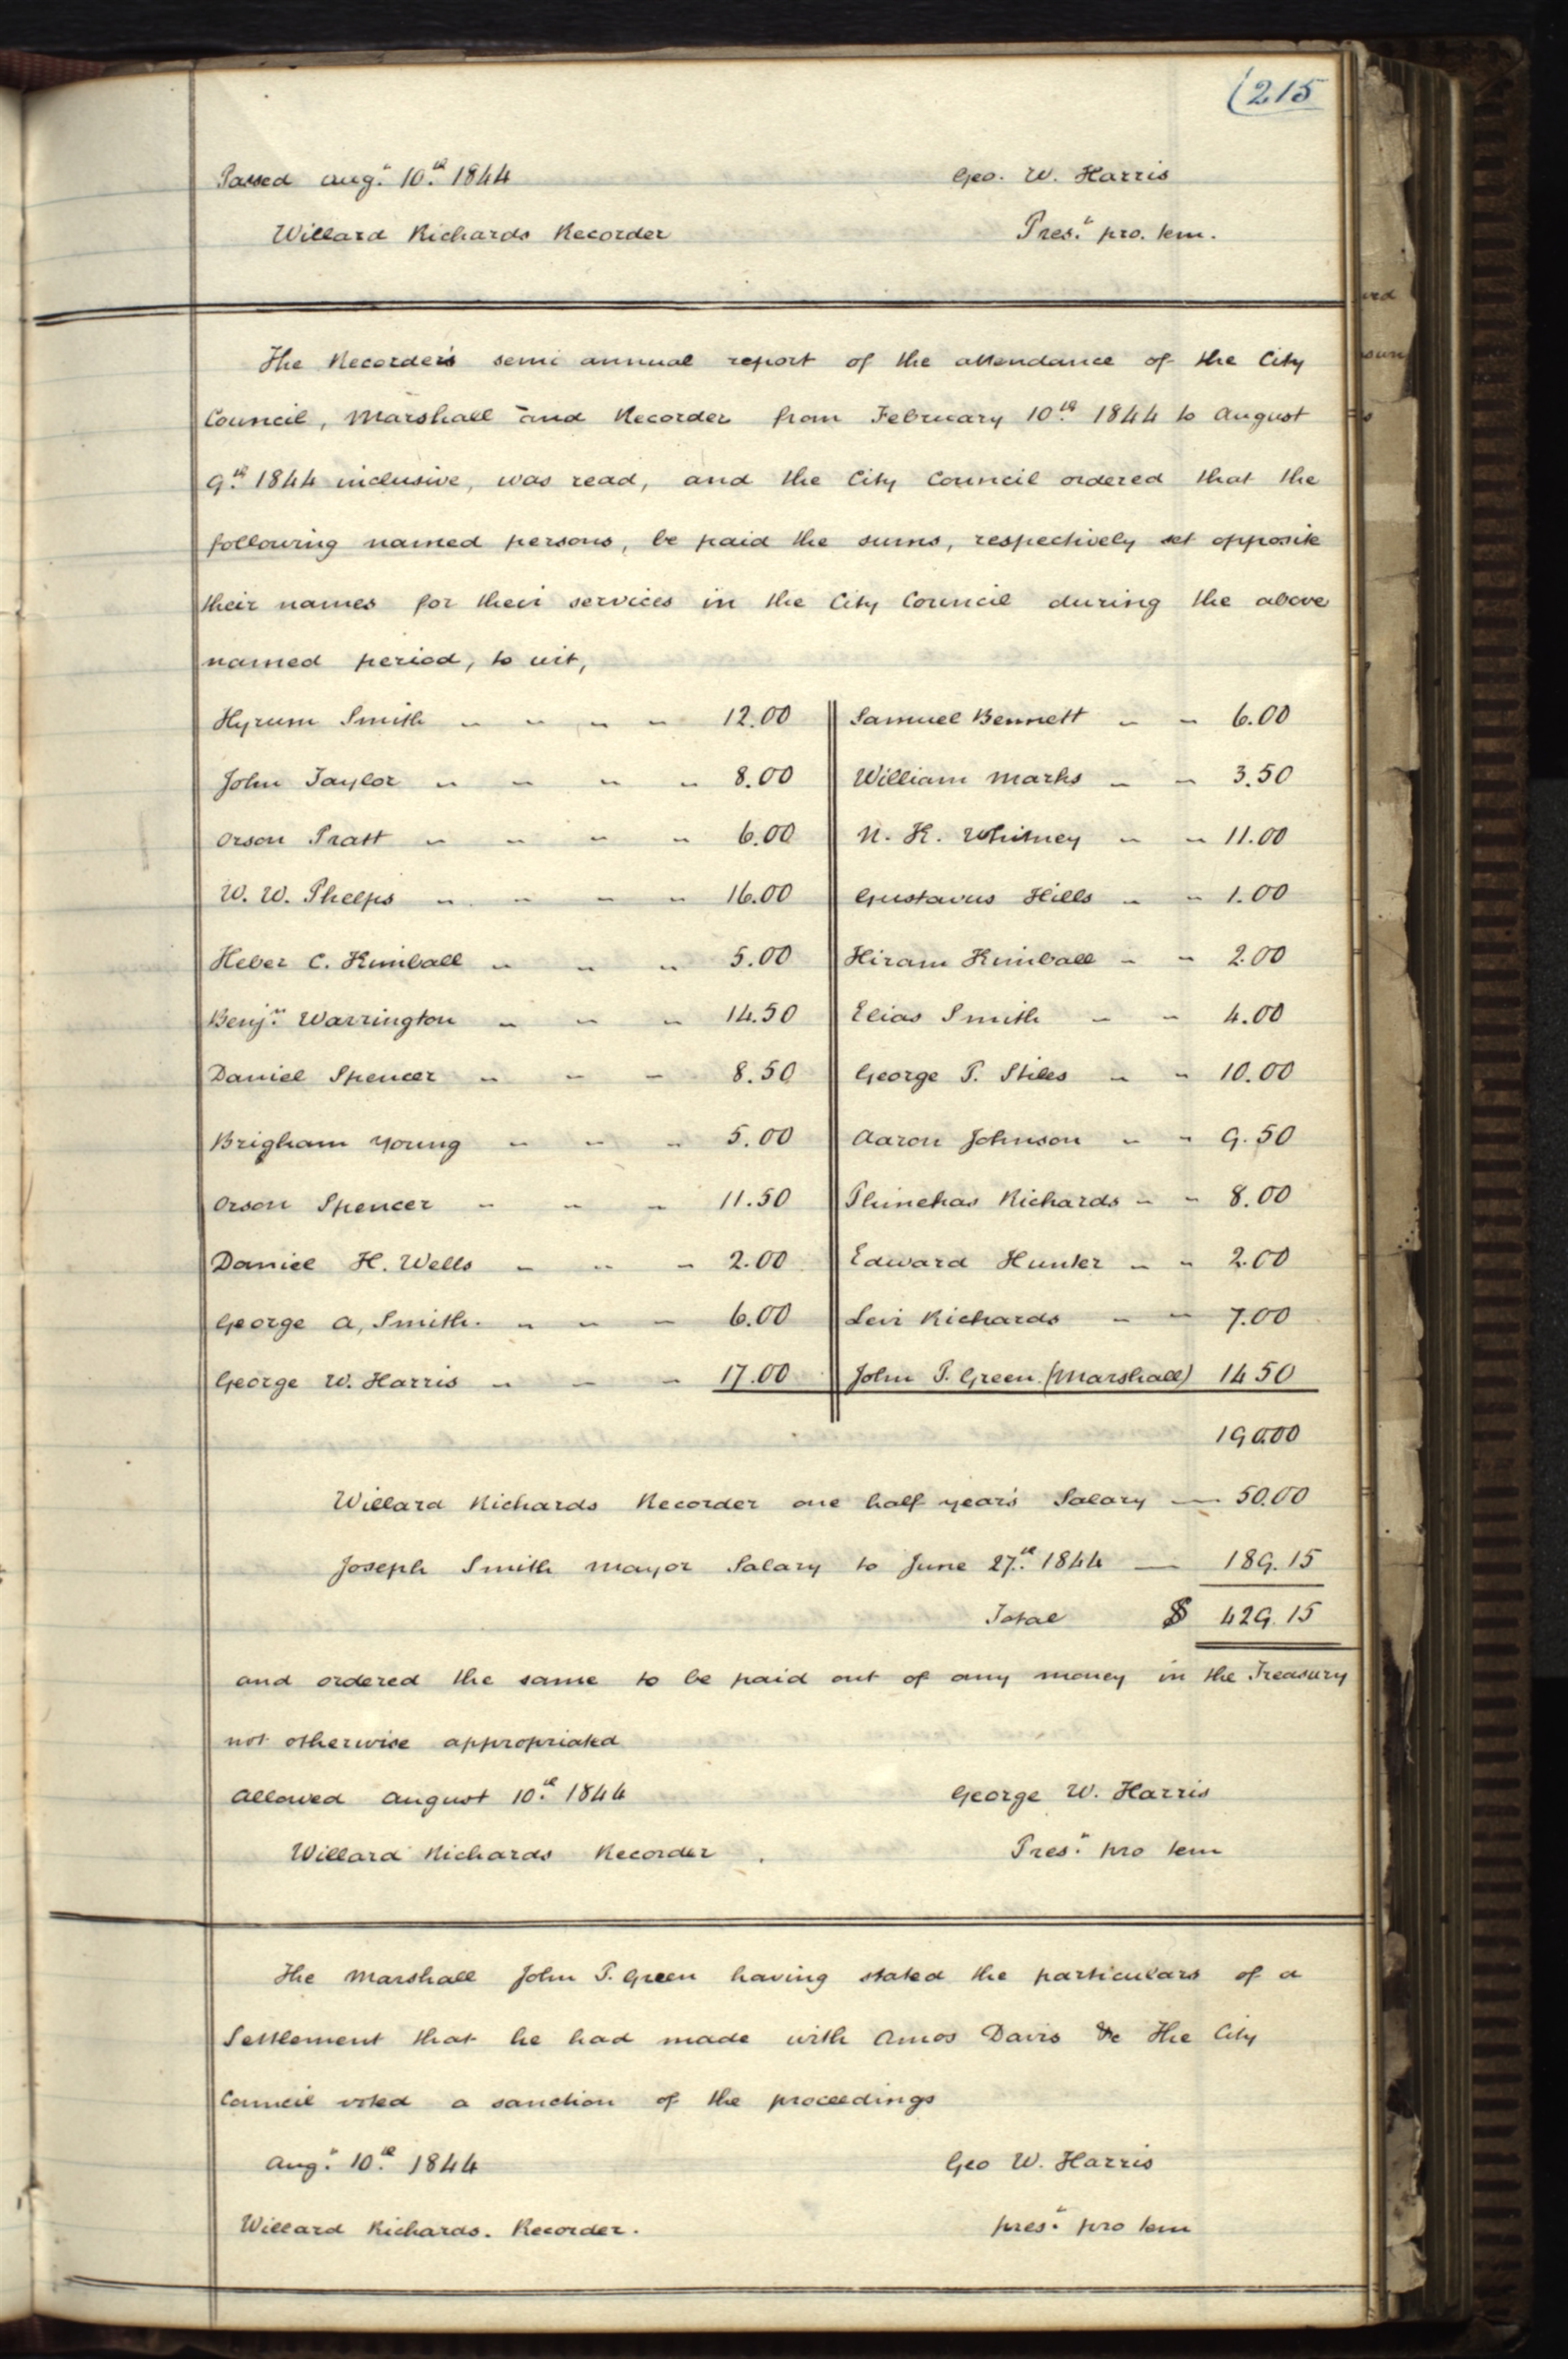 (215
Passed Aug.t 10.th 1844 Geo. W. Harris
Willard Richards Recorder Pres.t pro. tem.
The Recorder's semi annual report of the attendance of the City
Council, Marshall and Recorder from February 10.th 1844 to August
9.th 1844 inclusive, was read, and the City Council ordered that the
following named persons, be paid the sums, respectively set opposite
their names for their services in the City Council during the above
named period, to wit,
Hyrum Smith " " " " 12.00 Samuel Bennett " " 6.00
John Taylor " " " " 8.00 William Marks " " 3.50
Orson Pratt " " " " 6.00 N. K. Whitney " " 11.00
W. W. Phelps " " " " 16.00 Gustavus Hills " " 1.00
Heber C. Kimball " " " 5.00 Hiram Kimball " " 2.00
Benj.n Warrington " " " 14.50 Elias Smith " " 4.00
Daniel Spencer " " " 8.50 George P. Stiles " " 10.00
Brigham Young " " " 5.00 Aaron Johnson " " 9.50
Orson Spencer " " " 11.50 Phinehas Richards " " 8.00
Daniel H. Wells " " " 2.00 Edward Hunter " " 2.00
George A, Smith. " " " 6.00 Levi Richards " " 7.00
George W. Harris " " " 17.00 John P. Green. (Marshall) 14 50
190.00
Willard Richards Recorder one half year's Salary — 50.00
Joseph Smith Mayor Salary to June 27.th 1844 — 189.15
Total $ 429.15
and ordered the same to be paid out of any money in the Treasury
not otherwise appropriated
Allowed August 10.th 1844 George W. Harris
Willard Richards Recorder . Pres.t pro tem
The Marshall John P. Green having stated the particulars of a
Settlement that he had made with Amos Davis &c The City
Council voted a sanction of the proceedings
Aug.t 10.th 1844 Geo W. Harris
Willard Richards. Recorder. pres.t pro tem